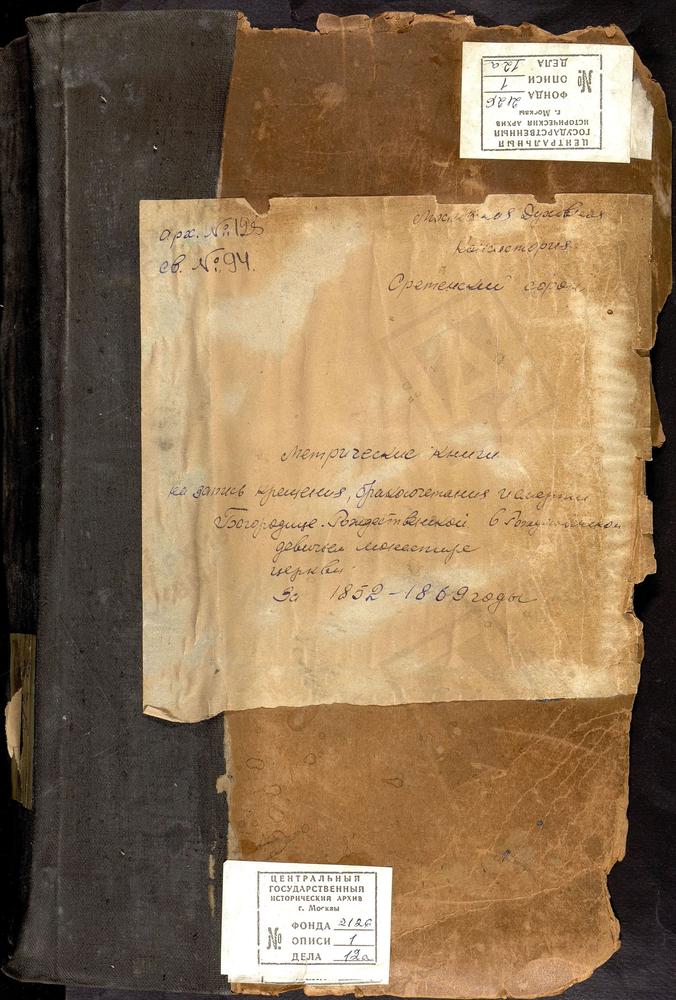 ЦЕНТРАЛЬНЫЙ
ГОСУДАРСТВЕННЫЙ
ИСТОРИЧЕСКИЙ АРХИВ
г. Москвы
№
ФОНДА 2126
ОПИСИ 1
ДЕЛА 12а
арх. № 125
св. № 94.
Московская Духовная
Консистория
Сретенский сорок
Метрические книги
на запись крещения, бракосочетания и смерти
Богородице-Рождественской в Рождественском
девичьем монастыре
церкви.
За 1852-1869 годы
ЦЕНТРАЛЬНЫЙ
ГОСУДАРСТВЕННЫЙ
ИСТОРИЧЕСКИЙ АРХИВ
г. Москвы
№
ФОНДА 2126
ОПИСИ 1
ДЕЛА 12а